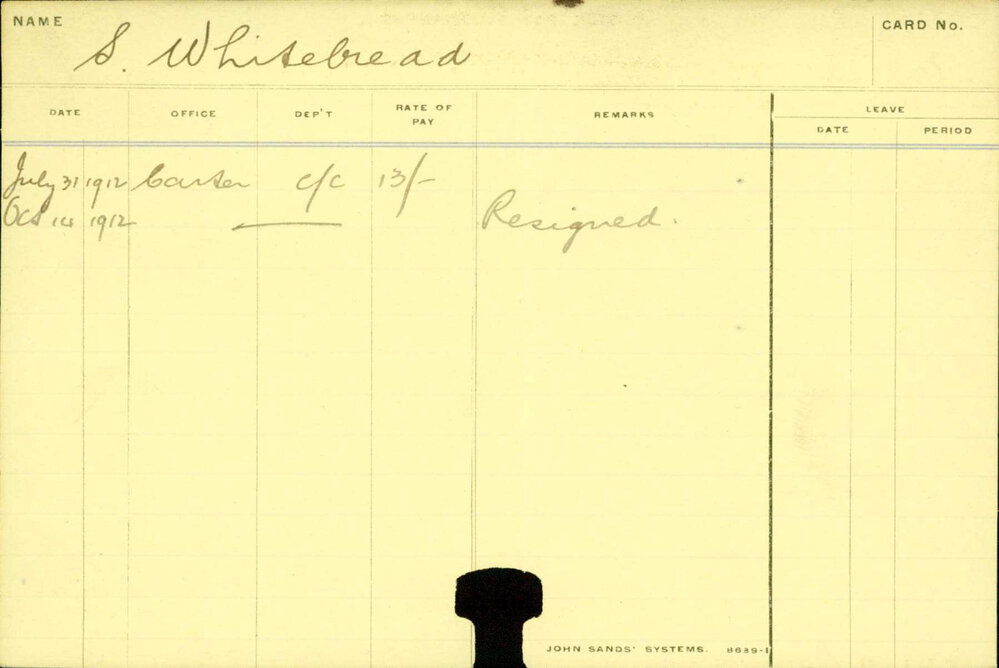 NAME S. Whitebread CARD No.
DATE OFFICE DEP'T RATE OF PAY REMARKS LEAVE
DATE PERIOD
July 31 1912 Carter c/c 13/-
Oct 14 1912 Resigned.
JOHN SANDS' SYSTEMS. 8639-1